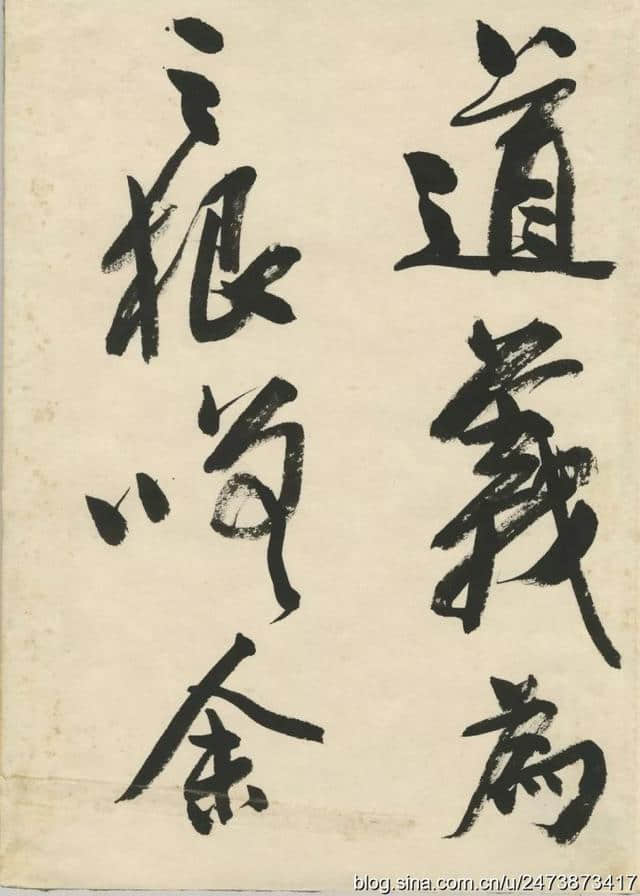 道義為
之根嗟余
blog.sina.com.cn/u/2473873417